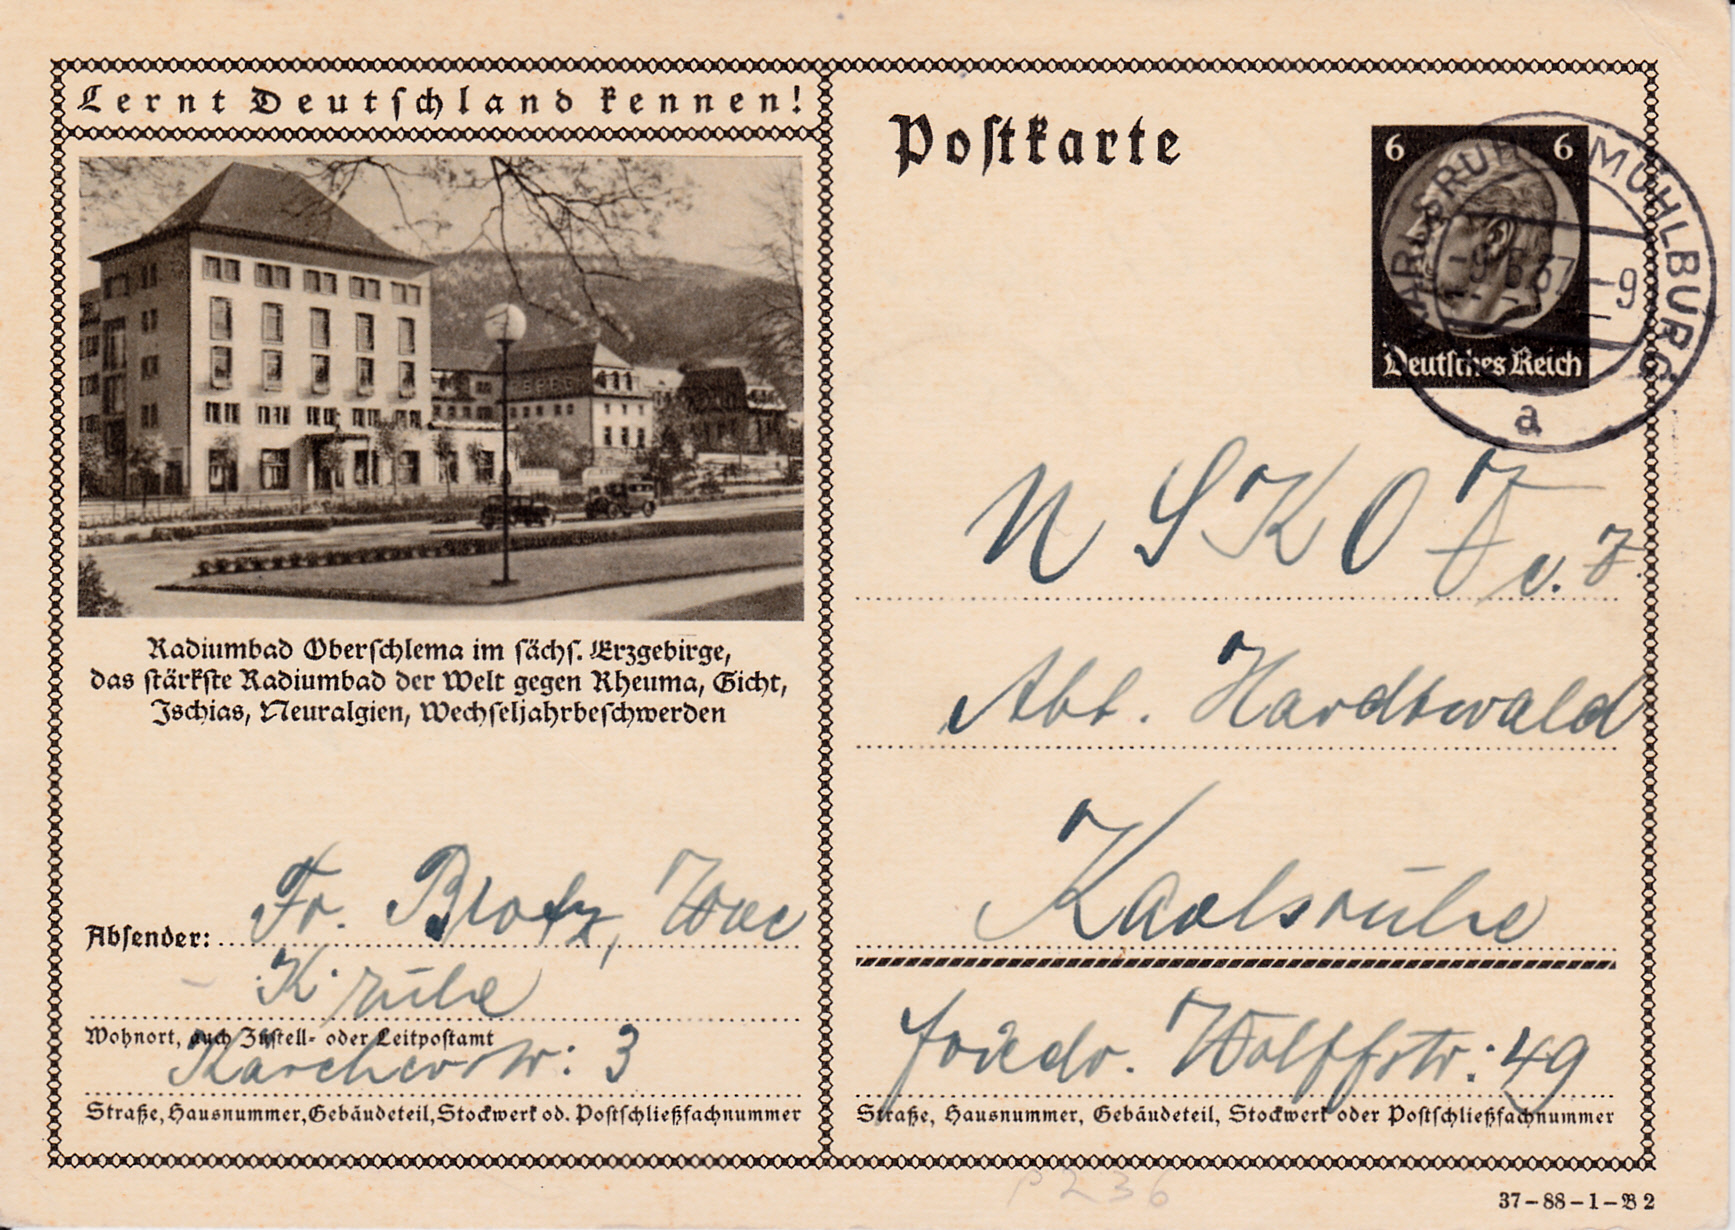 Lernt Deutschland kennen!
Radiumbad Oberschlema im sächs. Erzgebirge,
das stärkste Radiumbad der Welt gegen Rheuma, Gicht,
Ischias, Neuralgien, Wechseljahrbeschwerden
Absender: Fr.
K'ruhe
Wohnort, auch Zustell- oder Leitpostamt
Karcherstr: 3
Straße, Hausnummer, Gebäudeteil, Stockwerk od. Postschließfachnummer
Postkarte
6 6
Deutsches Reich
KARLSRUHE MÜHLBURG
37-9
a
N S K O V
Abt. Hardtwald
Karlsruhe
Friedr. Wolffstr: 49
Straße, Hausnummer, Gebäudeteil, Stockwerk oder Postschließfachnummer
P 236
37-88-1-B 2